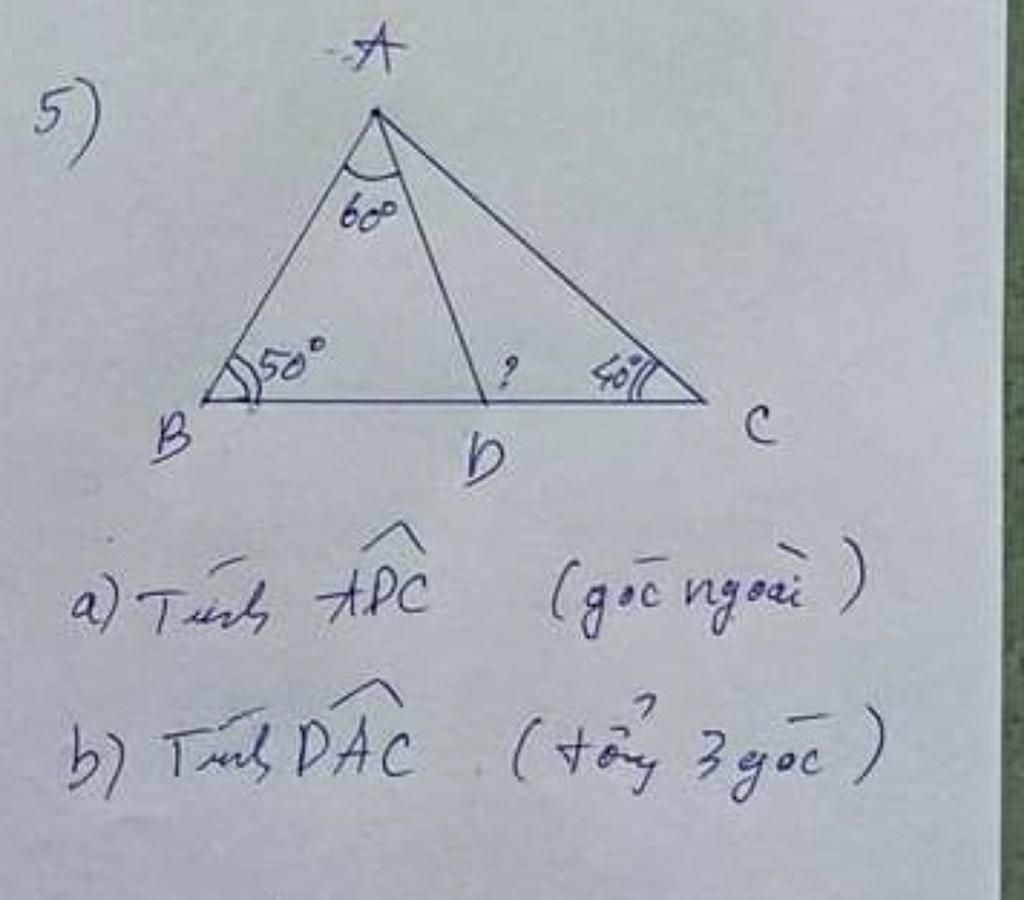 5)
A
60°
50°
?
40°
B
D
C
a) Tính ADC (góc ngoài)
b) Tính DAC (tổng 3 góc)